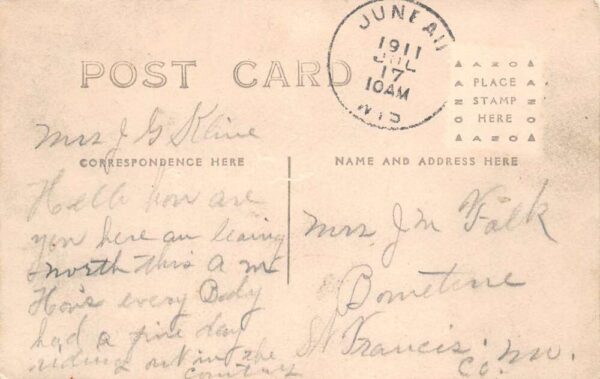 JUNEAU
1911
JUL
17
10AM
WIS
POST CARD
AZO
PLACE
STAMP
HERE
AZO
Mrs J G Kline
CORRESPONDENCE HERE
NAME AND ADDRESS HERE
Hello how are
you here am leaving
north this A M
How's every Body
had a fine day
riding out in the
country
Mrs J M Falk
St Francis. Co.